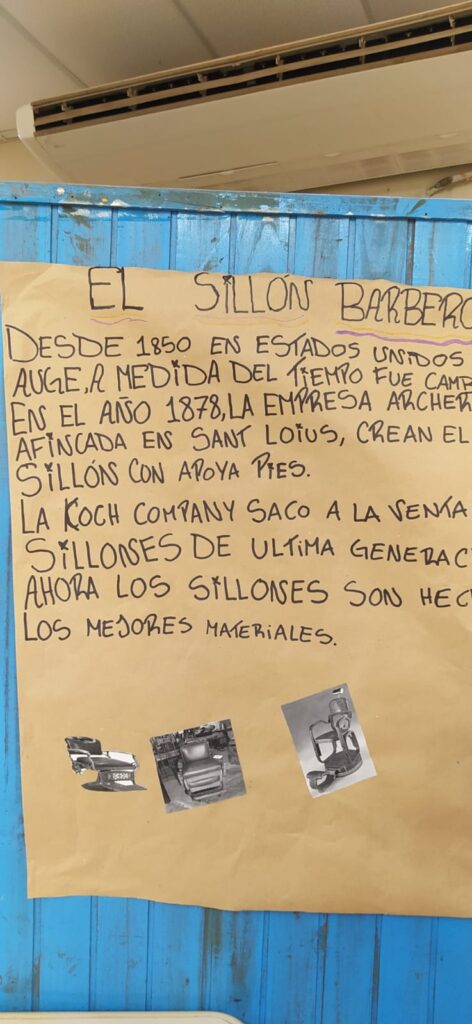 EL SILLÓN BARBERO
DESDE 1850 EN ESTADOS UNIDOS
AUGE, A MEDIDA DEL TIEMPO FUE
EN EL AÑO 1878, LA EMPRESA ARCHER
AFINCADA EN SANT LOIUS, CREAN EL
SILLÓN CON APOYA PIES.
LA KOCH COMPANY SACO A LA VENTA
SILLONES DE ULTIMA GENERAC
AHORA LOS SILLONES SON HEC
LOS MEJORES MATERIALES.